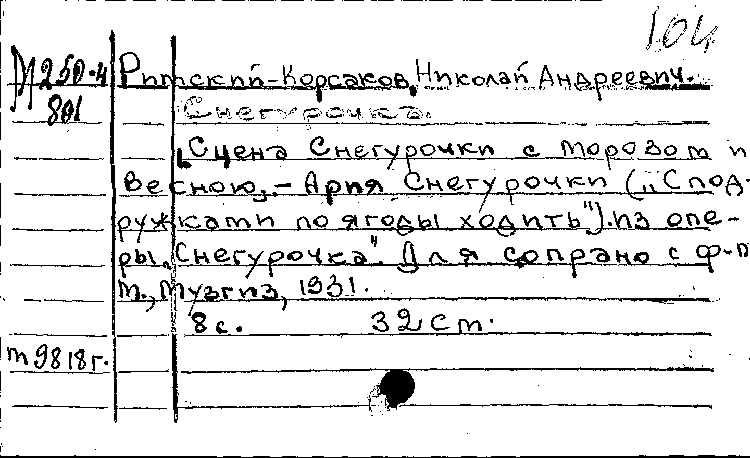 104
М250-4 Римский-Корсаков, Николай Андреевич.
801 Снегурочка.
[Сцена Снегурочки с Морозом и
Весною,- Ария Снегурочки („С под-
ружками по ягоды ходить"). Из опе-
ры „Снегурочка". Для сопрано с ф-п
М., Музгиз, 1931.
8 с. 32 см.
м9818г.